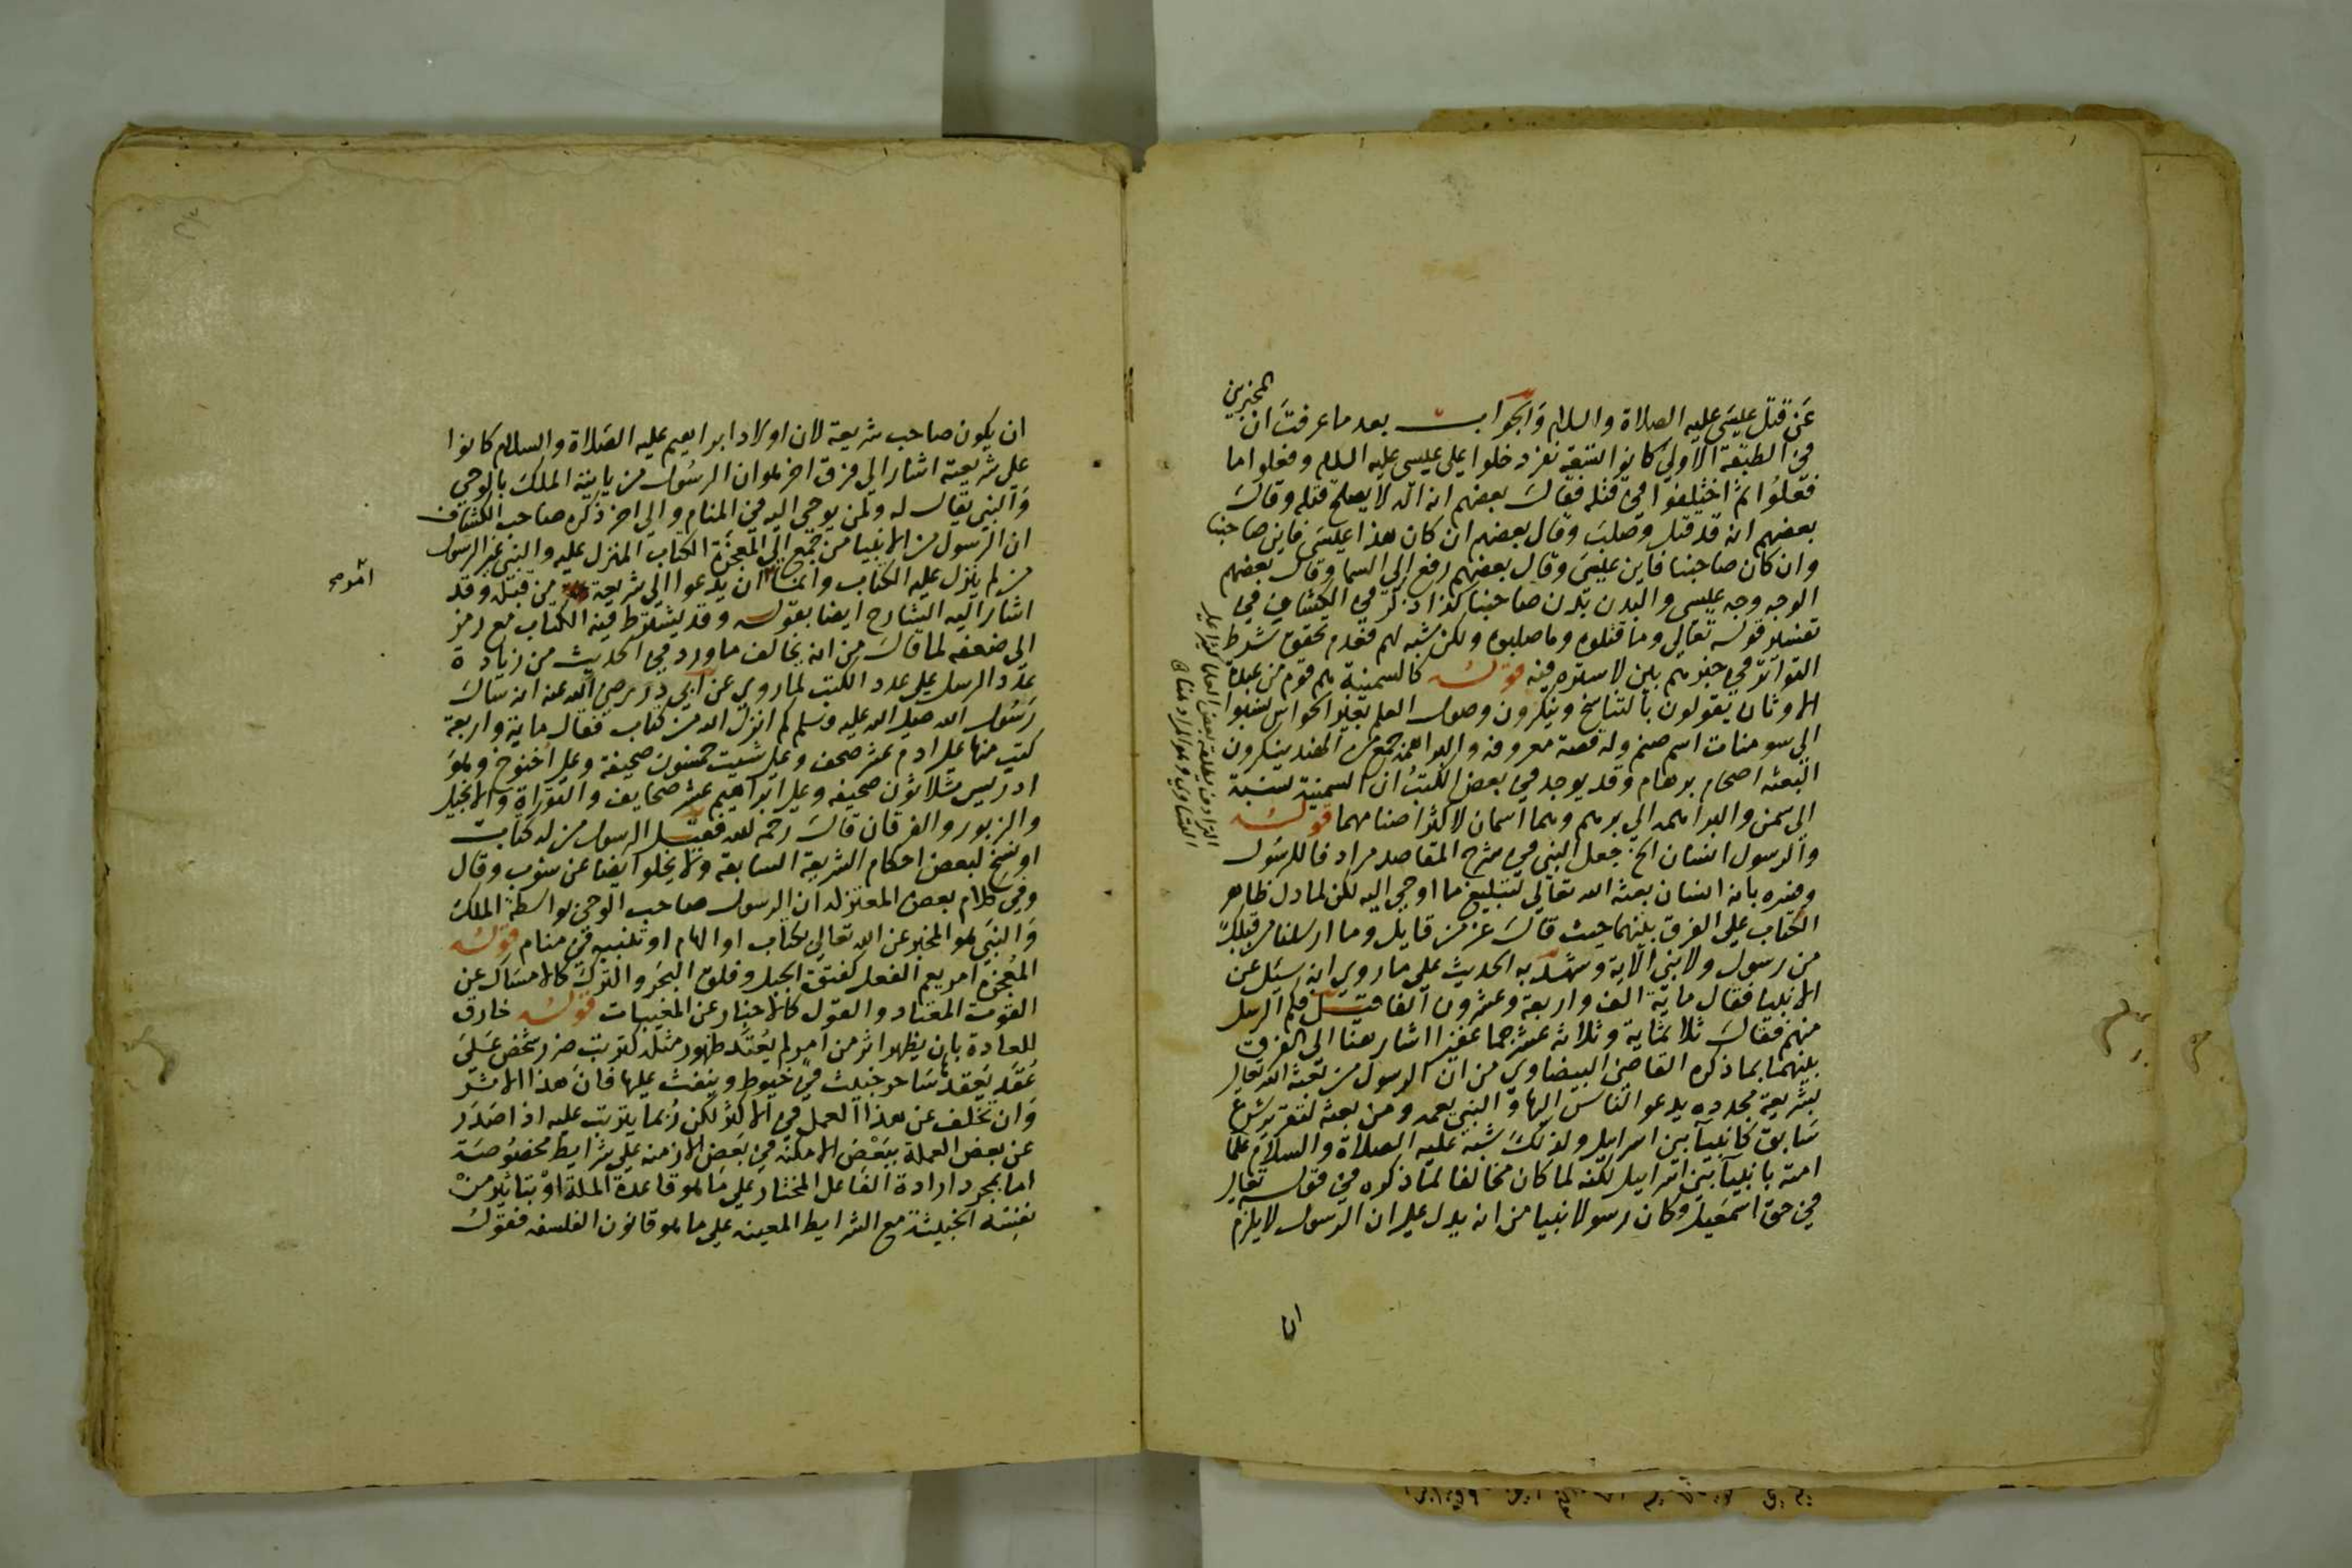 المخبرين
عن قتل عيسى عليه الصلاة والسلام والجواب بعد ما عرفت ان
في الطبقة الاولى كانوا تسعة نفر دخلوا على عيسى عليه السلام وفعلوا ما
فعلوا ثم اختلفوا في قتله فقال بعضهم انه اله لا يصلح قتله وقال
بعضهم انه قد قتل وصلب وقال بعضهم ان كان هذا عيسى فاين صاحبنا
وان كان صاحبنا فاين عيسى وقال بعضهم رفع الى السما وقال بعضهم
الوجه وجه عيسى والبدن بدن صاحبنا كذا ذكر في الكشاف في
تفسير قوله تعالى وما قتلوه وما صلبوه ولكن شبه لهم فعدم تحقق شرط
التواتر في خبرهم بين لا سترة فيه قوله كالسمنية هم قوم من عبدة
الاوثان يقولون بالتناسخ وينكرون وصول العلم بغير الحواس نسبوا
الى سومنات اسم صنم وله قصة معروفة والبراهمة جمع من الهند ينكرون
البعثة اصحاب برهام وقد يوجد في بعض الكتب ان السمنية نسبة
الى سمن والبراهمة الى برهم وهما اسمان لاكثر اصنامهما قوله
والرسول انسان الخ جعل النبي في شرح المقاصد مرادفا للرسول
وفسره بانه انسان بعثه الله تعالى لتبليغ ما اوحي اليه لكن لما دل ظاهر
الكتاب على الفرق بينهما حيث قال عز من قايل وما ارسلنا من قبلك
من رسول ولا نبي الاية وشهد به الحديث على ما روي انه سئل عن
الانبيا فقال ماية الف واربعة وعشرون الفا قيل فكم الرسل
منهم فقال ثلاثماية وثلاثة عشر جما غفيرا اشار هنا الى الفرق
بينهما بما ذكره القاضي البيضاوي من ان الرسول من بعثه الله تعالى
بشريعة مجددة يدعو الناس اليها والنبي يعمه ومن بعثه لتقرير شرع
سابق كانبيآ بني اسرايل ولذلك شبه عليه الصلاة والسلام علما
امته بانبيآ بني اسرايل لكنه لما كان مخالفا لما ذكره في قوله تعالى
في حق اسمعيل وكان رسولا نبيا من انه يدل على ان الرسول لا يلزم
ان
ان يكون صاحب شريعة لان اولاد ابراهيم عليه الصلاة والسلام كانوا
على شريعته اشار الى فرق اخر هو ان الرسول من ياتيه الملك بالوحي
والنبي يقال له ولمن يوحى اليه في المنام والى اخر ذكره صاحب الكشاف
ان الرسول من الانبيا من جمع الى المعجزة الكتاب المنزل عليه والنبي غير الرسول
من لم ينزل عليه الكتاب وانما ان يدعوا الى شريعة من قبله وقد
اشار اليه الشارح ايضا بقوله وقد يشترط فيه الكتاب مع رمز
الى ضعفه لما قال من انه يخالف ما ورد في الحديث من زيادة
عدد الرسل على عدد الكتب لما روي عن ابي ذر رضي الله عنه انه سال
رسول الله صلى الله عليه وسلم كم انزل الله من كتاب فقال ماية واربعة
كتب منها على ادم عشر صحف وعلى شيث خمسون صحيفة وعلى اخنوخ وهو
ادريس ثلاثون صحيفه وعلى ابراهيم عشر صحايف والتوراة والانجيل
والزبور والفرقان قال رحمه الله فقيل الرسول من له كتاب
او نسخ لبعض احكام الشريعة السابقة ولا يخلو ايضا عن شوب وقال
وفي كلام بعض المعتزله ان الرسول صاحب الوحي بواسطة الملك
والنبي هو المخبر عن الله تعالى بكتاب او الهام او تنبيه في منام قوله
المعجزه امر يعم الفعل كفتق الجبل وفلق البحر والترك كالامساك عن
القوت المعتاد والقول كالاخبار عن المغيبات قوله خارق
للعادة بان يظهر اثر من امر لم يعتد ظهور مثله كترتب ضرر شخص على
عقد يعقد ساحر خبيث في خيوط وينفث عليها فان هذا الاثر
وان تخلف عن هذا العمل في الاكثر لكن ربما يترتب عليه اذا صدر
عن بعض العملة ببعض الامكنة في بعض الازمنه على شرايط مخصوصة
اما بمجرد ارادة الفاعل المختار على ما هو قاعدة الملة او بتاثير من
نفسه الخبيثة مع الشرايط المعينه على ما هو قانون الفلسفه فقول